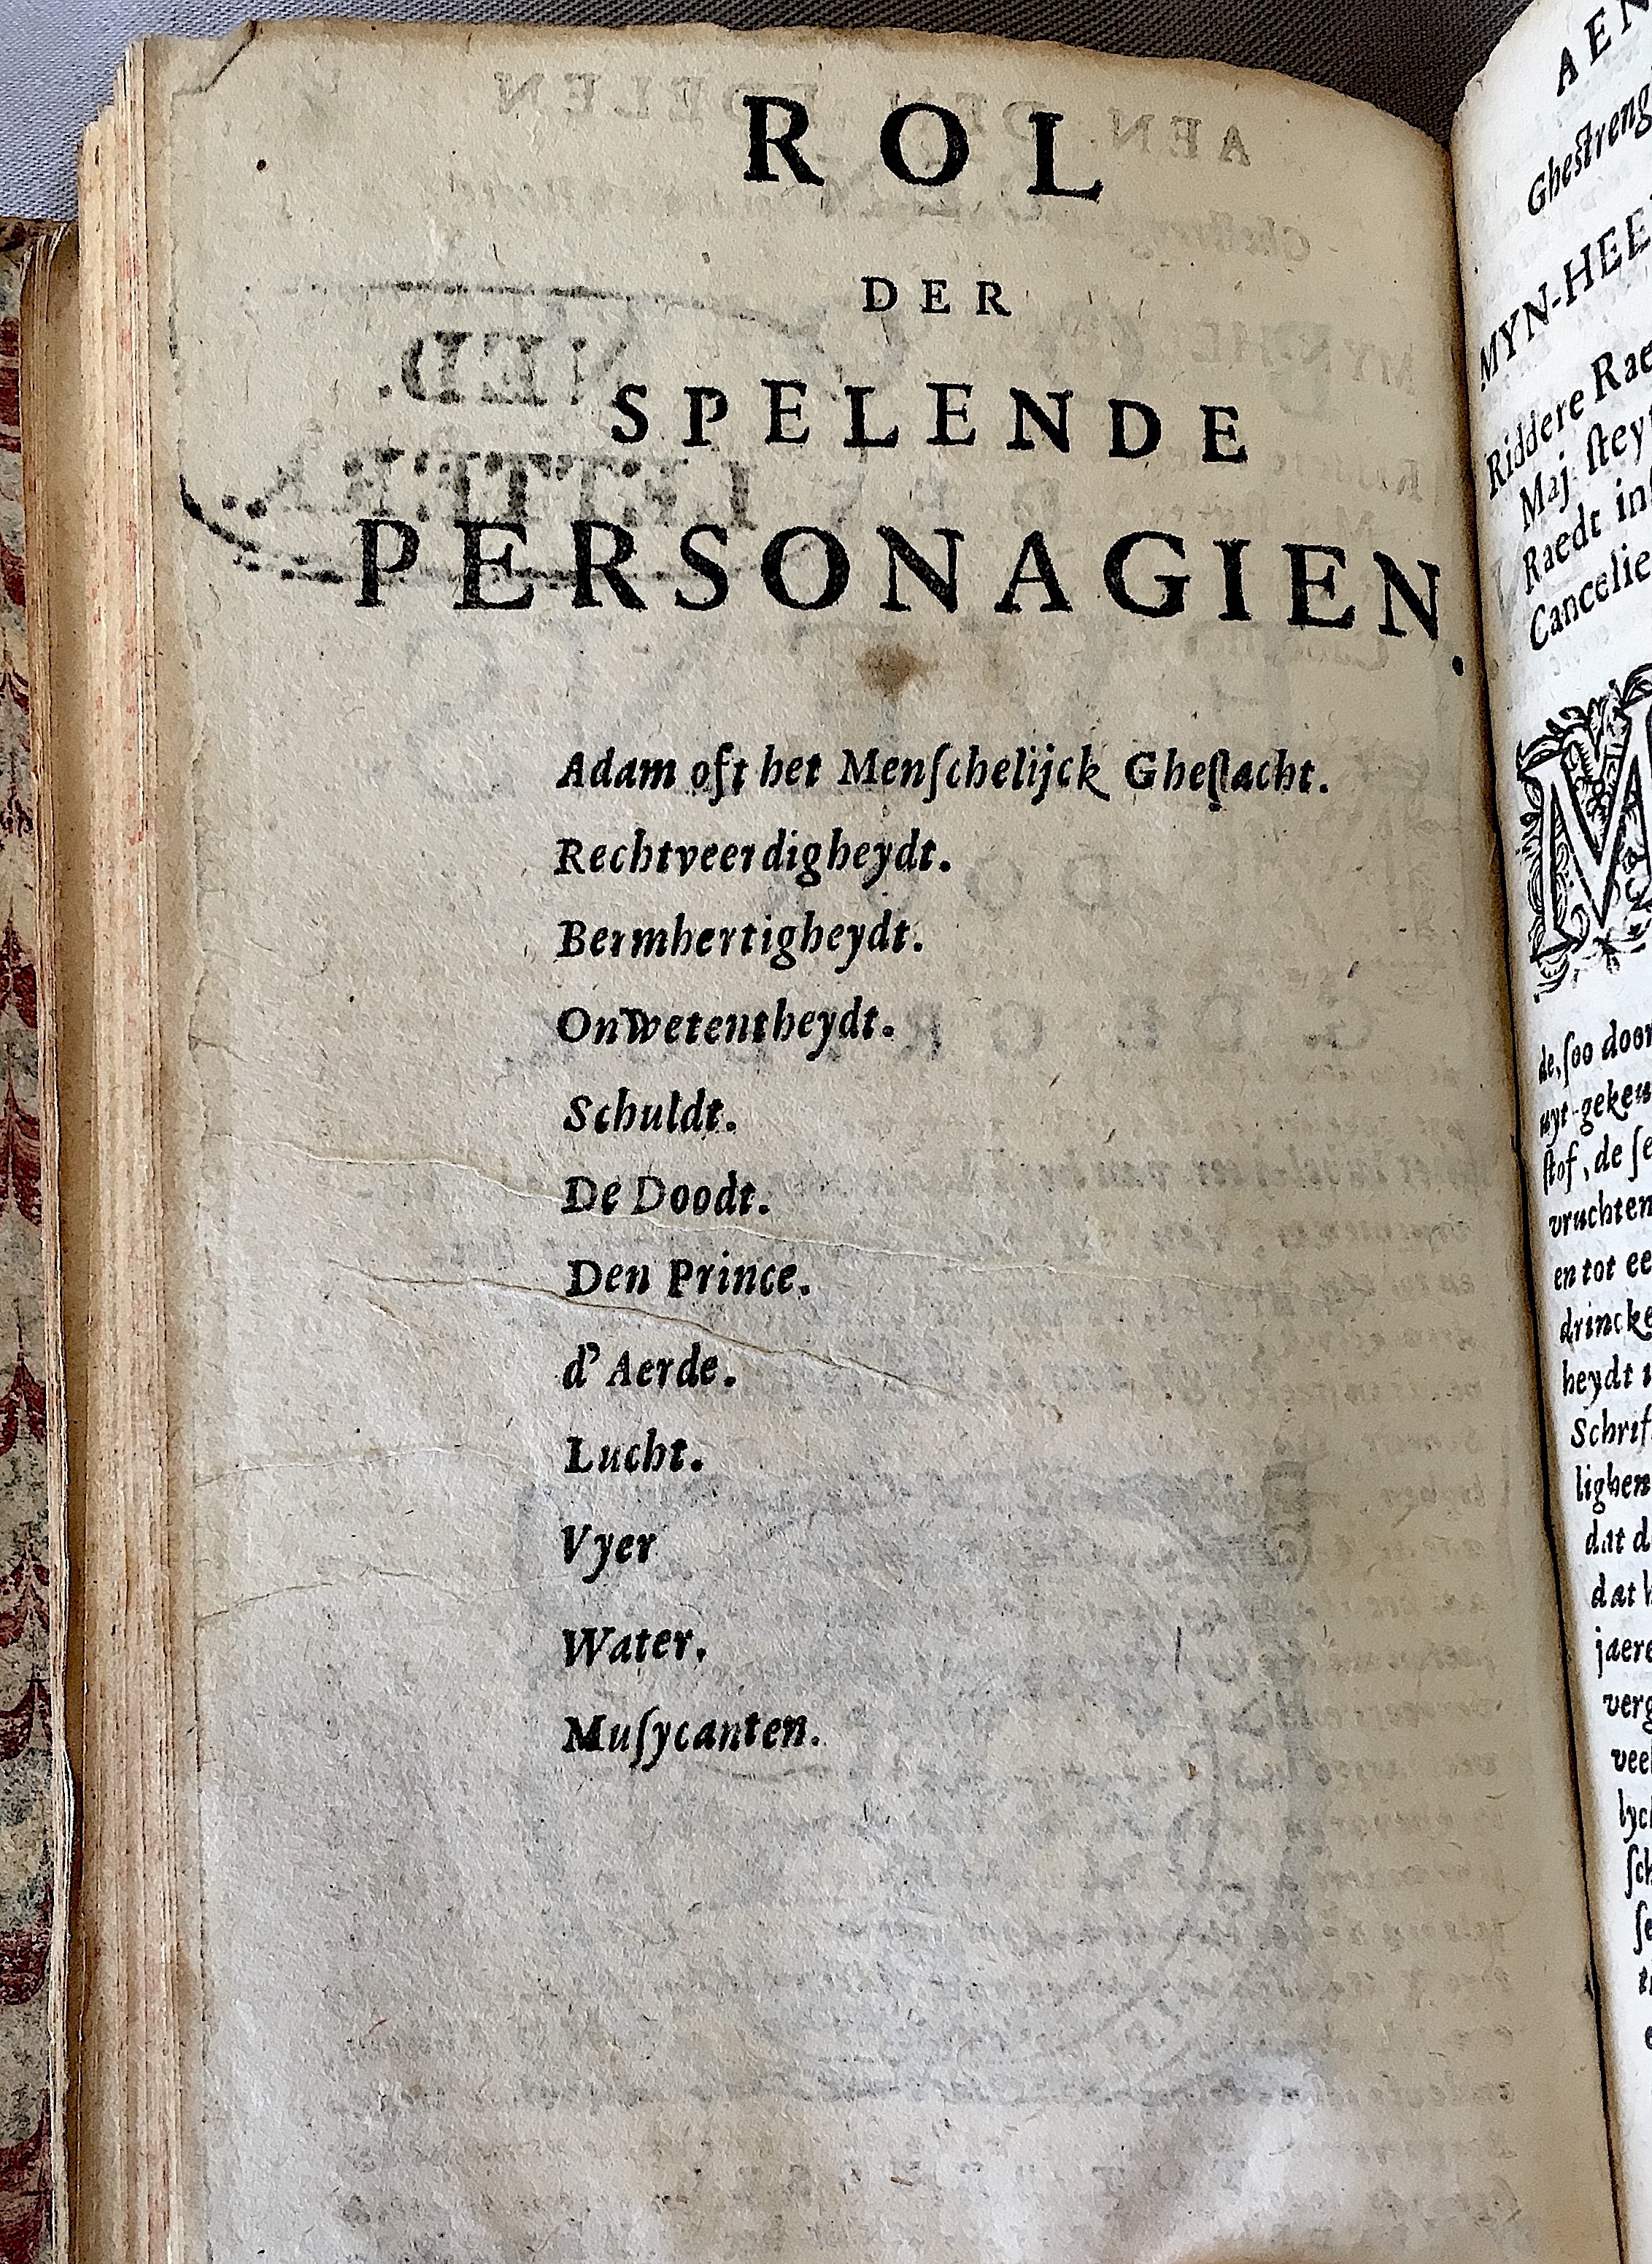 ROL
DER
SPELENDE
PERSONAGIEN.
Adam oft het Menſchelijck Gheſlacht.
Rechtveerdigheydt.
Bermhertigheydt.
Onwetentheydt.
Schuldt.
De Doodt.
Den Prince.
d'Aerde.
Lucht.
Vyer
Water.
Muſycanten.
AEN
Gheſtreng
MYN-HEE
Riddere Rae
Maj. ſtey
Raedt in
Cancelie
M
de, ſoo door
uyt-geken
ſtof, de ſe
vruchten
en tot ee
drincke
heydt
Schrif
lighen
dat d
dat
jaere
verg
veel
lyc
ſch
ſe